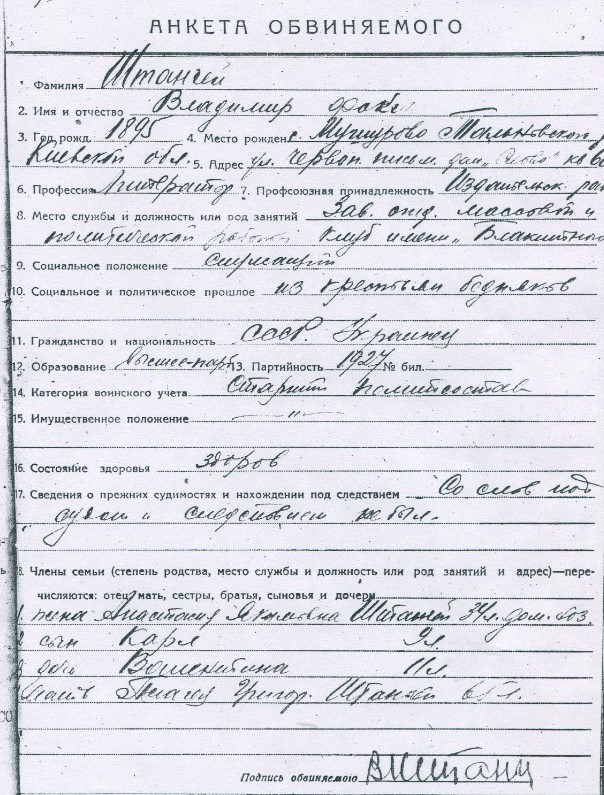 АНКЕТА ОБВИНЯЕМОГО
1. Фамилия Штангей
2. Имя и отчество Владимир
3. Год рожд. 1895 4. Место рожден. с. Мушурово Тальновского р
Киевской обл. 5. Адрес ул. Червон. письм. дом „Слово" кв
6. Профессия Литератор 7. Профсоюзная принадлежность Издательск. раб
8. Место службы и должность или род занятий Зав. отд. массовой и
политической работы клуб имени „Блакитного
9. Социальное положение служащий
10. Социальное и политическое прошлое из крестьян бедняков
11. Гражданство и национальность СССР. Украинец
12. Образование высшее 13. Партийность 1927 № бил.
14. Категория воинского учета Старший политсостав
15. Имущественное положение — „ —
16. Состояние здоровья здоров
17. Сведения о прежних судимостях и нахождении под следствием Со слов под
судом и следствием не был.
18. Члены семьи (степень родства, место службы и должность или род занятий и адрес)—пере-
числяются: отец, мать, сестры, братья, сыновья и дочери
1. жена Анастасия Якимовна Штангей 34 л. дом. хоз.
2 сын Карл 9 л.
3 дочь Валентина 11 л.
мать Григор. Штангей 65 л.
Подпись обвиняемого ВШтанг